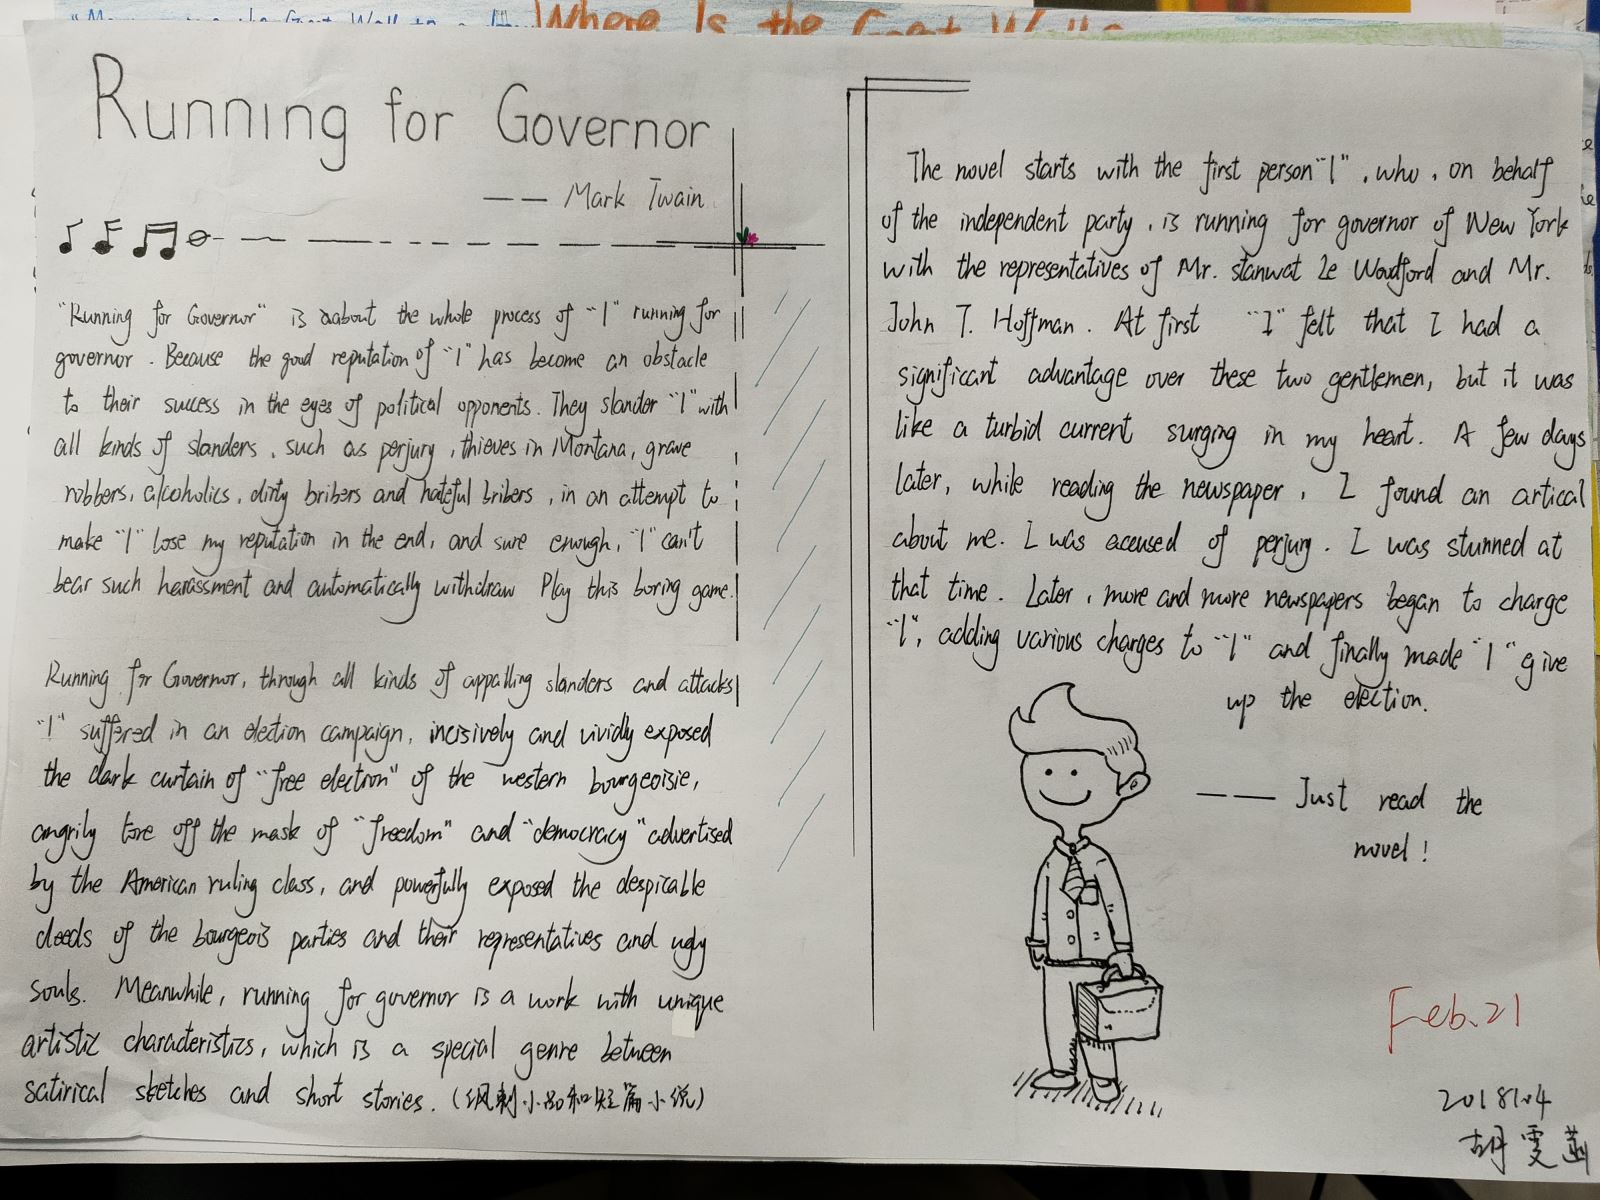 Where Is the Great Wall
Running for Governor
—— Mark Twain
"Running for Governor" is about the whole process of "I" running for
governor. Because the good reputation of "I" has become an obstacle
to their success in the eyes of political opponents. They slander "I" with
all kinds of slanders, such as perjury, thieves in Montana, grave
robbers, alcoholics, dirty bribers and hateful bribers, in an attempt to
make "I" lose my reputation in the end, and sure enough, "I" can't
bear such harassment and automatically withdraw Play this boring game.
Running for Governor, through all kinds of appalling slanders and attacks
"I" suffered in an election campaign, incisively and vividly exposed
the dark curtain of "free electron" of the western bourgeoisie,
angrily tore off the mask of "freedom" and "democracy" advertised
by the American ruling class, and powerfully exposed the despicable
deeds of the bourgeois parties and their representatives and ugly
souls. Meanwhile, running for governor is a work with unique
artistic characteristics, which is a special genre between
satirical sketches and short stories. (讽刺小品和短篇小说)
The novel starts with the first person "I", who, on behalf
of the independent party, is running for governor of New York
with the representatives of Mr. stanwat le Woodford and Mr.
John T. Hoffman. At first "I" felt that I had a
significant advantage over these two gentlemen, but it was
like a turbid current surging in my heart. A few days
later, while reading the newspaper, I found an artical
about me. I was accused of perjury. I was stunned at
that time. Later, more and more newspapers began to charge
"I", adding various charges to "I" and finally made "I" give
up the election.
—— Just read the
novel!
Feb.21
胡雯